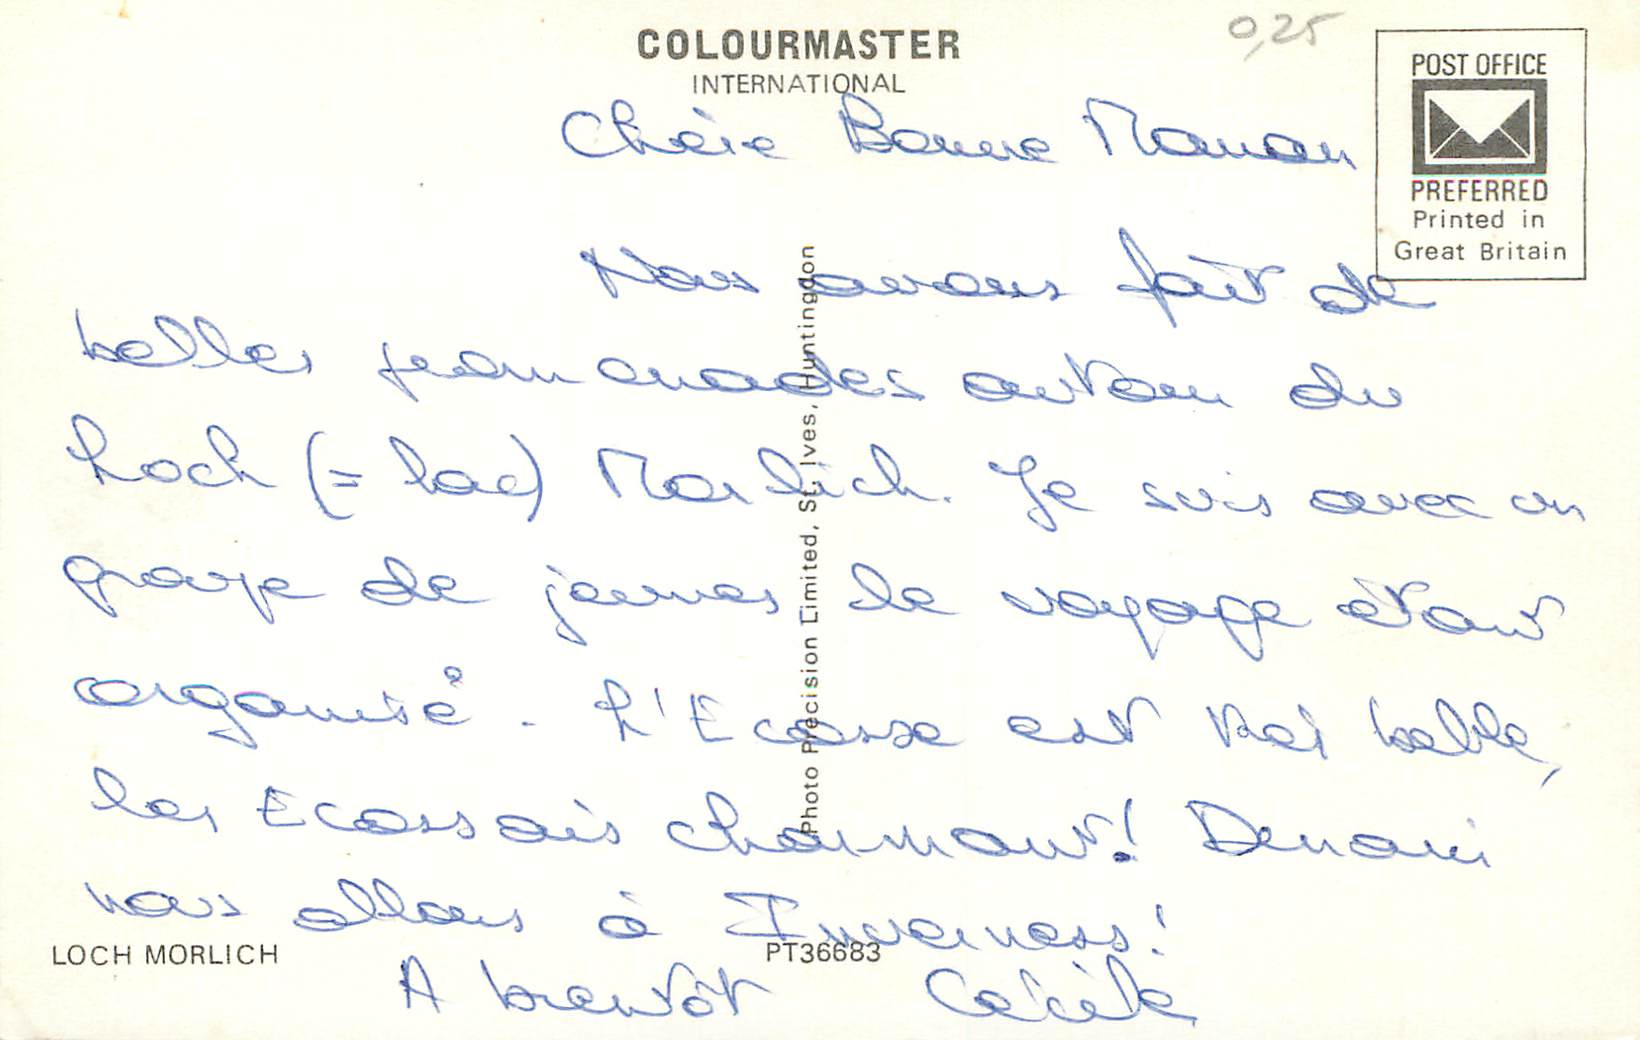 COLOURMASTER
INTERNATIONAL
0,25
POST OFFICE
PREFERRED
Printed in
Great Britain
Chère Bonne Maman
Nous avons fait de
belles promenades autour du
Loch (= lac) Morlich. Je suis avec un
groupe de jeunes le voyage étant
organisé. L'Ecosse est très belle,
les Ecossais charmant! Demain
nous allons à Inverness!
A bientôt Cécile
LOCH MORLICH
PT36683
Photo Precision Limited, St. Ives, Huntingdon